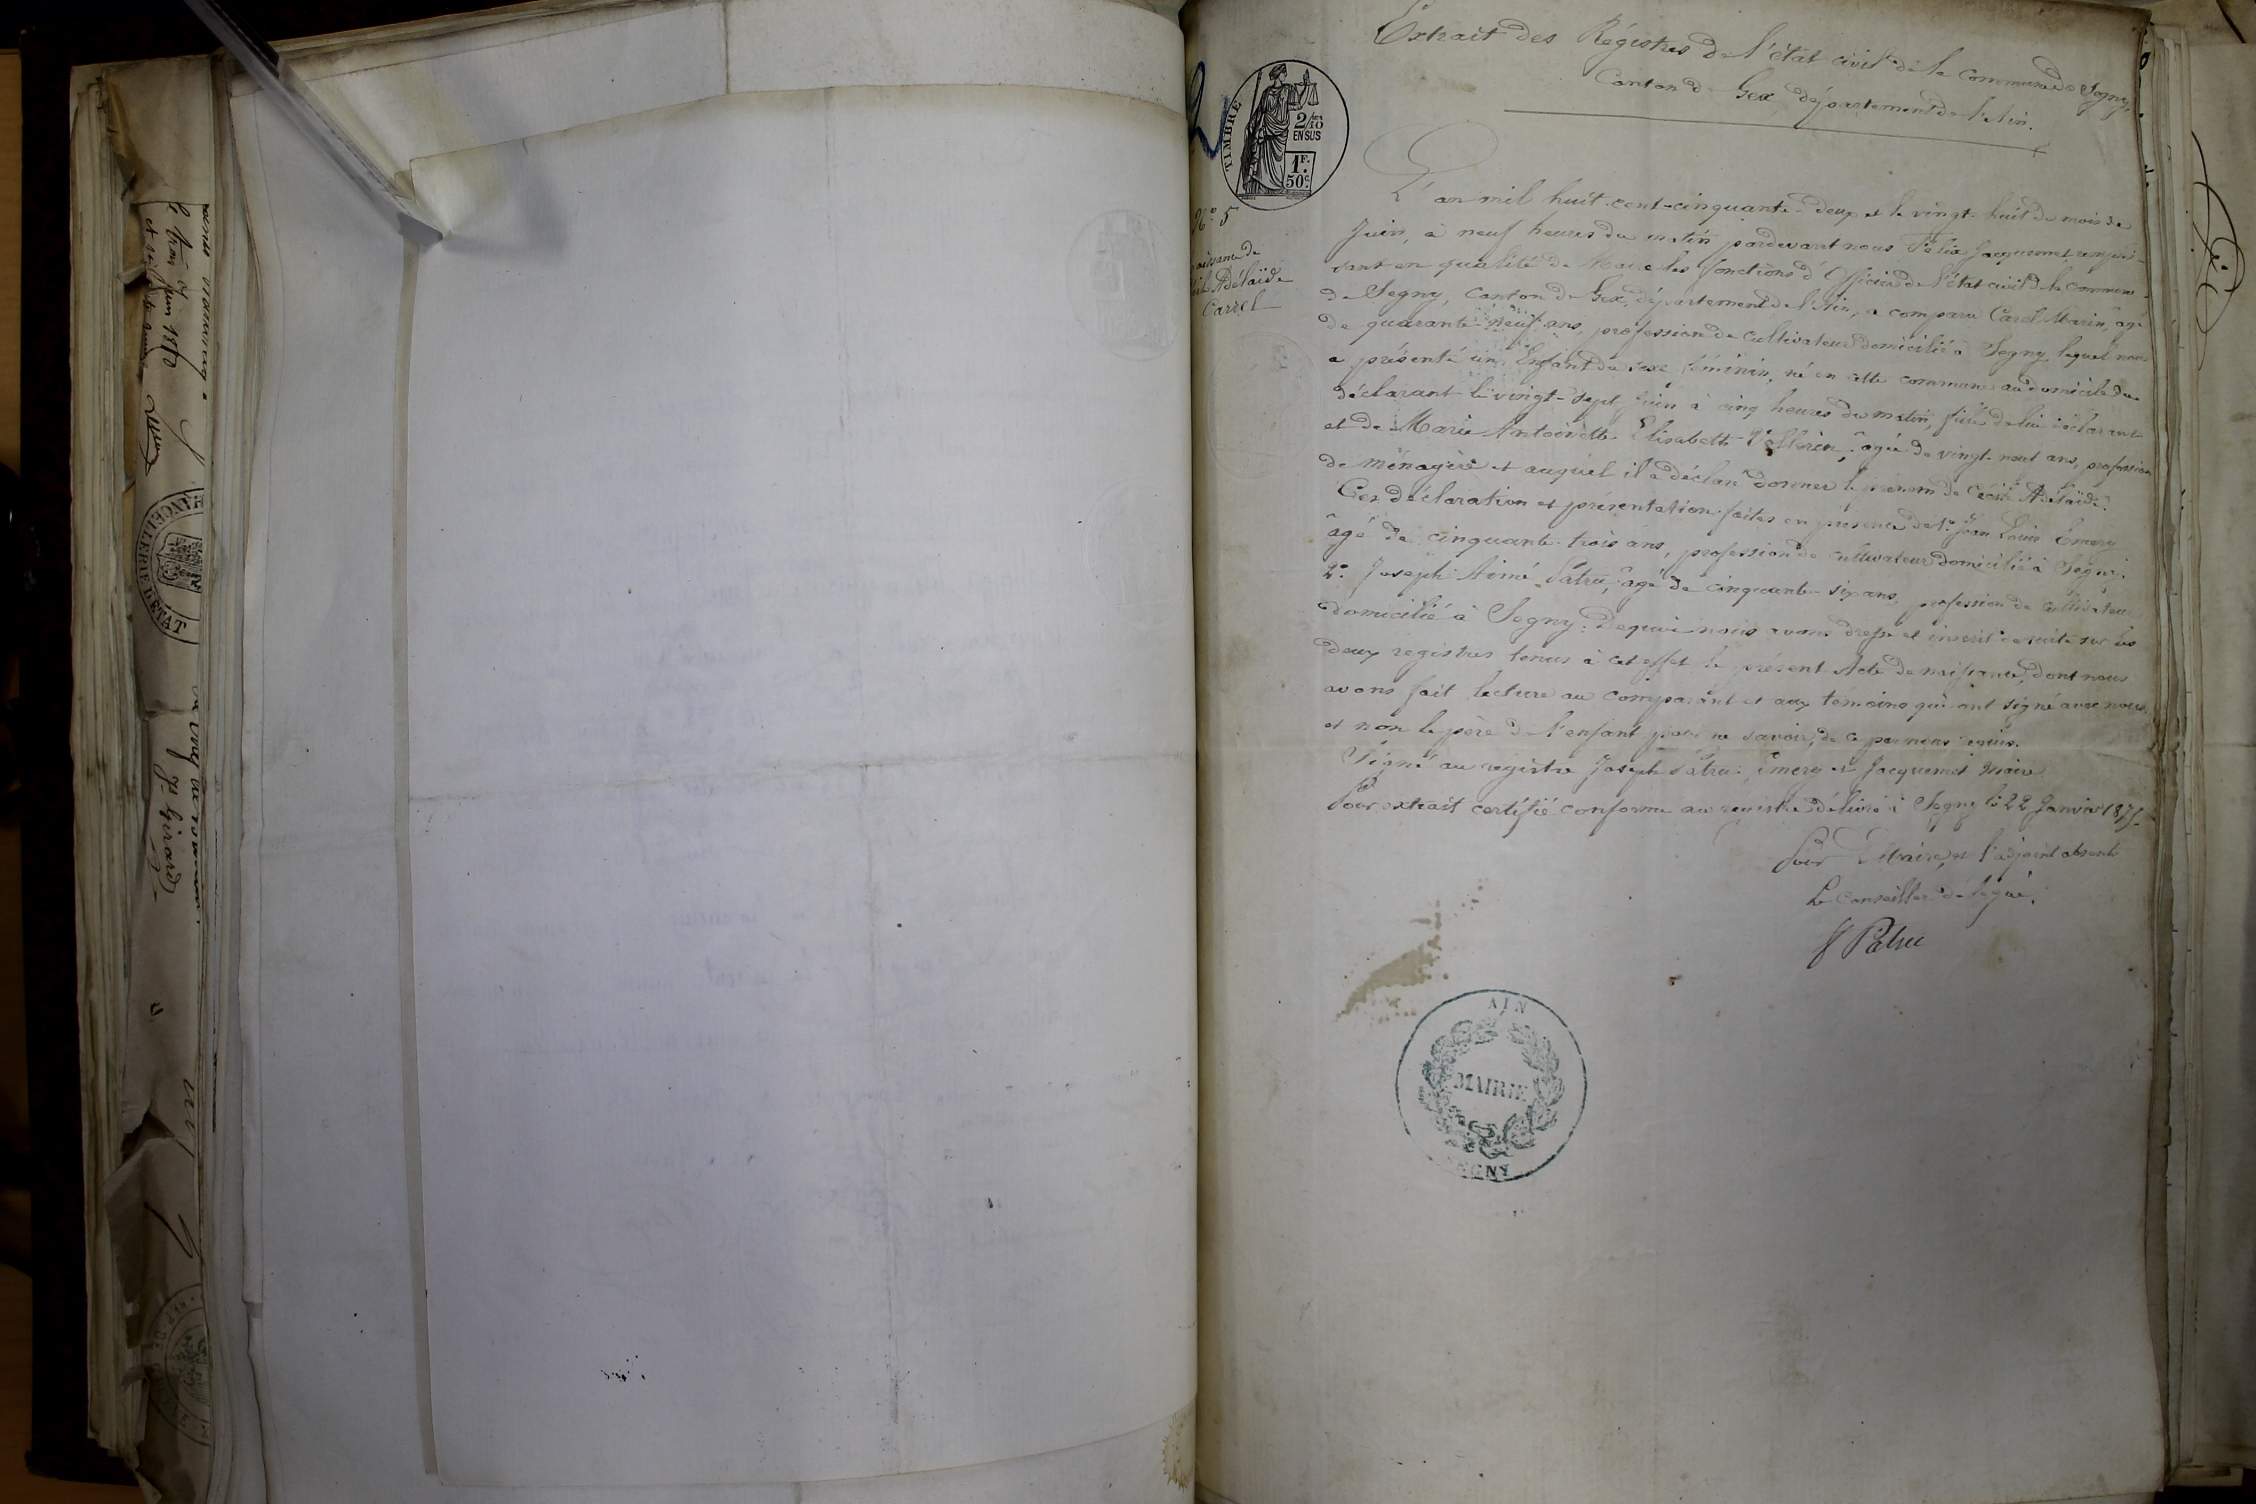 Extrait des Régistres de l'état civil de la commune de Segny,
Canton de Gex, département de l'Ain.
TIMBRE
2/10
EN SUS
1F.
50c.
No 5
naissance de
Adélaïde
Carrel
L'an mil huit-cent-cinquante-deux et le vingt-huit du mois de
Juin, à neuf heures du matin pardevant nous Félix Jacquemet remplis-
sant en qualité de Maire les fonctions d'Officier de l'état civil de la commune
de Segny, Canton de Gex, département de l'Ain, a comparu Carel Marin, âgé
de quarante-neuf ans, profession de cultivateur domicilié à Segny, lequel nous
a présenté un Enfant du sexe féminin, né en cette commune au domicile du
déclarant le vingt-sept Juin à cinq heures du matin, fille de lui déclarant
et de Marie Antoinette Elisabeth âgée de vingt-neuf ans, profession
de ménagère et auquel il a déclaré donner le prénom de Cécile Adélaïde.
Ces déclaration et présentation faites en présence de 1o Jean Louis Emery
âgé de cinquante-trois ans, profession de cultivateur domicilié à Segny.
2o Joseph Aimé Patru, âgé de cinquante-six ans, profession de cultivateur
domicilié à Segny. De quoi nous avons dressé et inscrit de suite sur les
deux registres tenus à cet effet le présent Acte de naissance, dont nous
avons fait lecture au comparant et aux témoins qui ont signé avec nous,
et non le père de l'enfant pour ne savoir, de ce par nous requis.
Signé au registre Joseph Patru, Emery et Jacquemet Maire
Pour extrait certifié conforme au registre délivré à Segny le 22 Janvier 1875.
Pour le Maire, et l'adjoint absents
Le Conseiller délégué.
Patru
AIN
MAIRIE
SEGNY
CHANCELLERIE D'ÉTAT